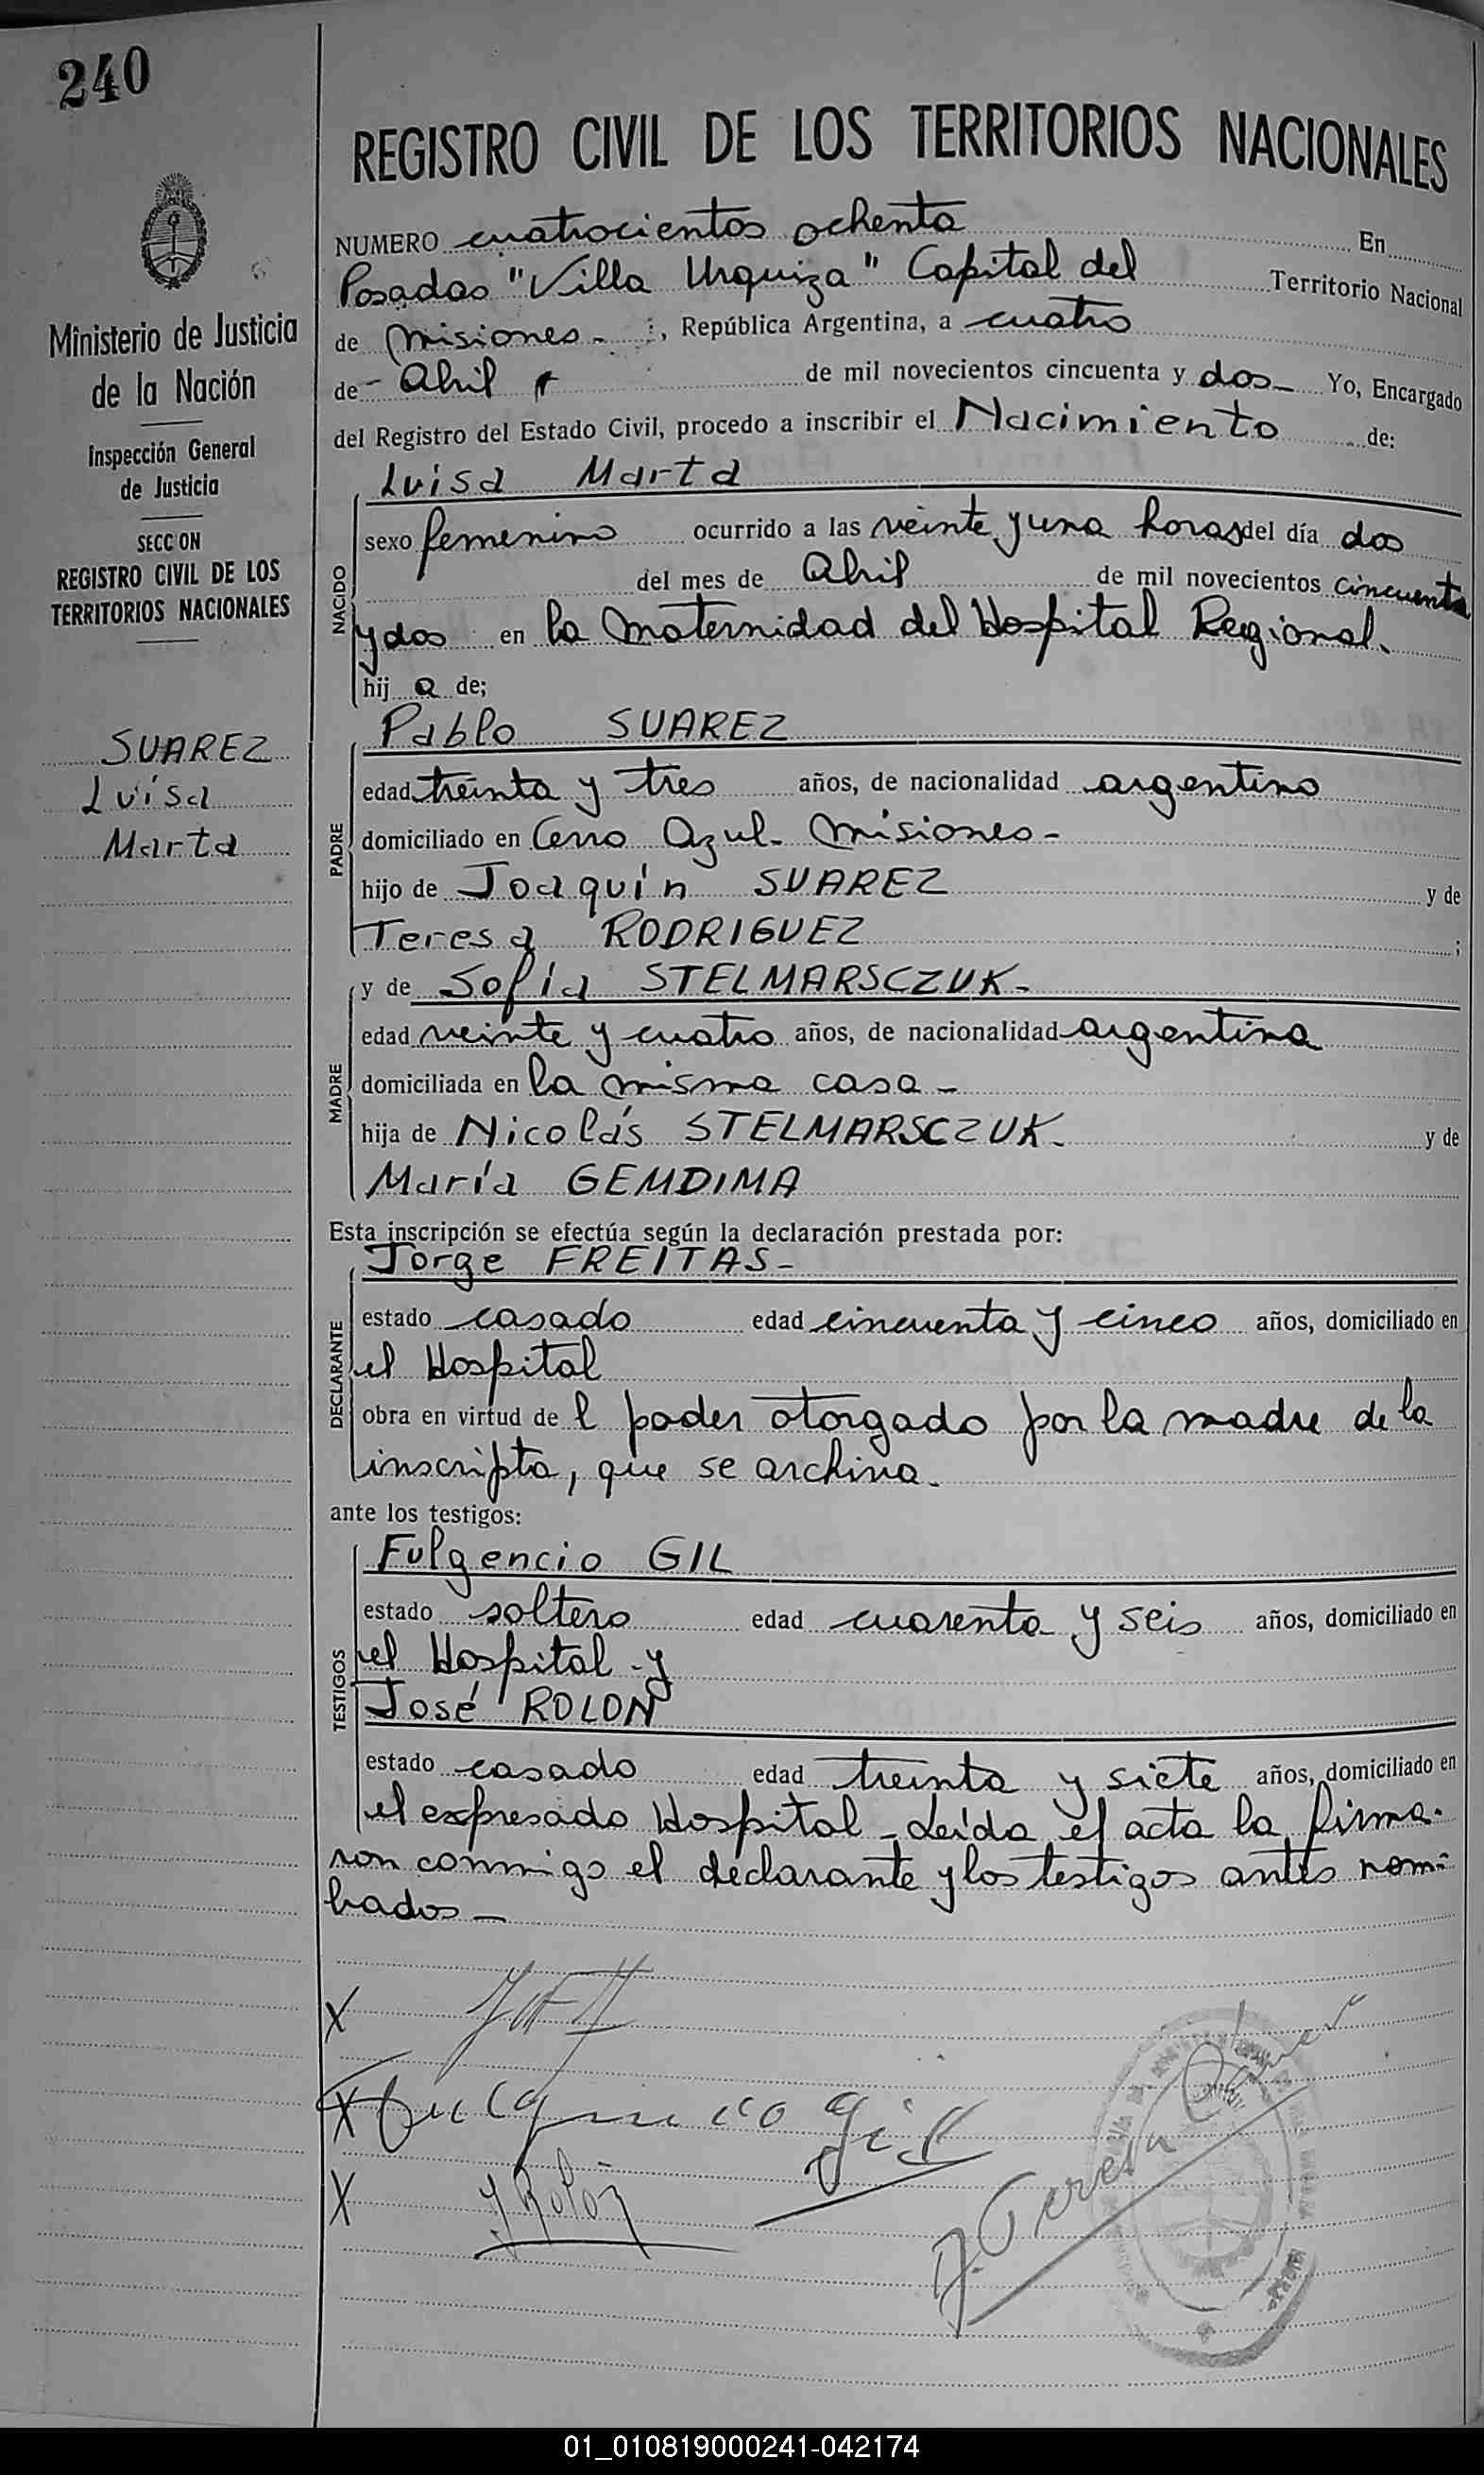 240
REGISTRO CIVIL DE LOS TERRITORIOS NACIONALES
Ministerio de Justicia
de la Nación
Inspección General
de Justicia
SECC ON
REGISTRO CIVIL DE LOS
TERRITORIOS NACIONALES
SUAREZ
Luisa
Marta
NUMERO cuatrocientos ochenta En
Posadas "Villa Urquiza" Capital del Territorio Nacional
de Misiones-, República Argentina, a cuatro
de - Abril de mil novecientos cincuenta y dos- Yo, Encargado
del Registro del Estado Civil, procedo a inscribir el Nacimiento de:
Luisa Marta
NACIDO
sexo femenino ocurrido a las veinte y una horas del día dos
del mes de Abril de mil novecientos cincuenta
y dos en la Maternidad del Hospital Regional.
hij a de;
Pablo SUAREZ
PADRE
edad treinta y tres años, de nacionalidad argentino
domiciliado en Cerro Azul- Misiones-
hijo de Joaquín SUAREZ y de
Teresa RODRIGUEZ ;
y de Sofía STELMARSCZUK-
MADRE
edad veinte y cuatro años, de nacionalidad argentina
domiciliada en la misma casa-
hija de Nicolás STELMARSCZUK- y de
María GEMDIMA
Esta inscripción se efectúa según la declaración prestada por:
Jorge FREITAS-
DECLARANTE
estado casado edad cincuenta y cinco años, domiciliado en
el Hospital
obra en virtud de l poder otorgado por la madre de la
inscripta, que se archiva-
ante los testigos:
Fulgencio GIL
TESTIGOS
estado soltero edad cuarenta y seis años, domiciliado en
el Hospital-y
José ROLON
estado casado edad treinta y siete años, domiciliado en
el expresado Hospital-Leída el acta la firma-
ron conmigo el declarante y los testigos antes nom=
brados-
X
X Fulgencio Gil
X J Rolón
01_010819000241-042174